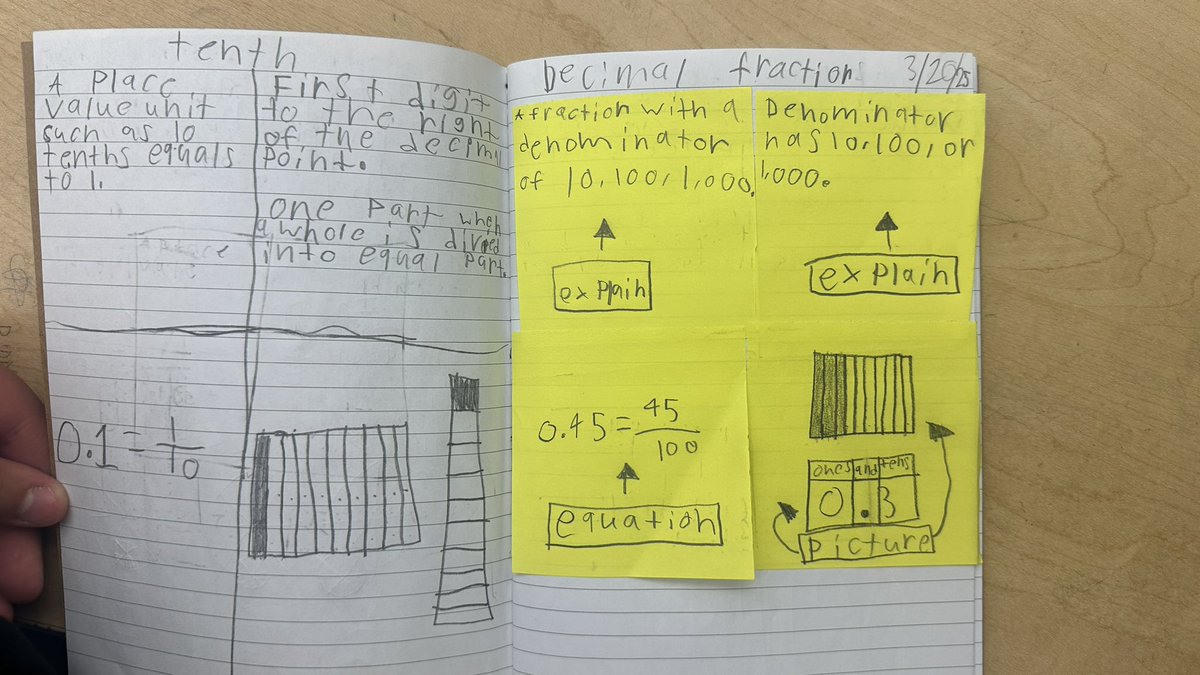 tenth
A Place
value unit
such as 10
tenths equals
to 1.
First digit
to the right
of the decimal
Point.
one Part when
a whole is divided
into equal Part.
0.1 = 1/10
Decimal fraction 3/20/25
A fraction with a
denominator
of 10, 100, 1,000.
explain
Denominator
has 10, 100, or
1,000.
explain
0.45 = 45/100
equation
ones and tens
0 . 3
picture